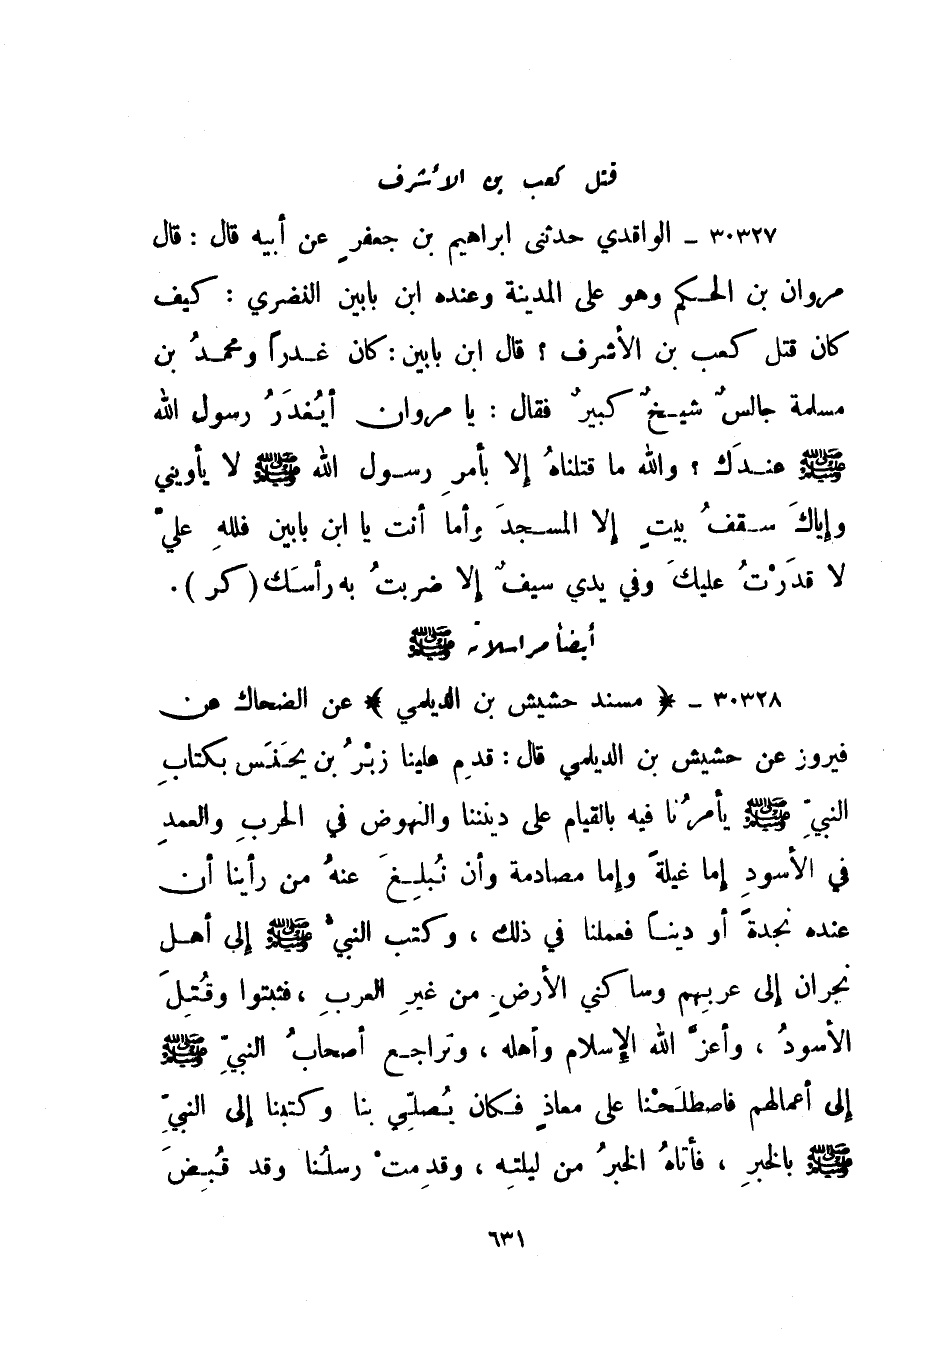 قتل كعب بن الأشرف
٣٠٣٢٧ ـ الواقدي حدثنى ابراهيم بن جعفرٍ عن أبيه قال : قال
مروان بن الحـكم وهو على المدينة وعنده ابن بابين النضري : كيف
كان قتل كعب بن الأشرف ؟ قال ابن بابين : كان غـدراً ومحمدُ بن
مسلمة جالسٌ شيـخٌ كبيرٌ فقال : يا مروان أيُغدَرُ رسول الله
ﷺ عنـدَك ؟ والله ما قتلناهُ إلا بأمرِ رسـول الله ﷺ لا يأويني
وإياكَ سـقفُ بيتٍ إلا المسـجدَ وأما أنت يا ابن بابين فللهِ عليّ
لا قدَرْتُ عليكَ وفي يدي سيفٌ إلا ضربتُ به رأسَك ( كر ) .
أيضاً مراسلاته ﷺ
٣٠٣٢٨ ـ ﴿ مسند حشيش بن الديلمي ﴾ عن الضحاك عن
فيروز عن حشيش بن الديلمي قال : قدِم علينا زبْرُ بن يحَنَس بكتابِ
النبيِّ ﷺ يأمرُنا فيه بالقيام على ديننا والنهوض في الحربِ والعمدِ
في الأسودِ إما غيلةً وإما مصادمة وأن نُبلِـغَ عنهُ من رأينا أن
عنده نجدةً أو دينـاً فعملنا في ذلك ، وكتب النبيُّ ﷺ إلى أهـل
نجران إلى عربِهم وساكني الأرضِ من غيرِ العربِ ، فثبتوا وقُتِلَ
الأسودُ ، وأعزَّ الله الإسلام وأهله ، وتراجـع أصحابُ النبيِّ ﷺ
إلى أعمالهم فاصطلَحْنا على معاذٍ فـكان يُصلّي بنا وكتبنا إلى النبيِّ
ﷺ بالخبرِ ، فأتاهُ الخبرُ من ليلتِه ، وقدِمتْ رسلُنا وقد قُبِـضَ
٦٣١